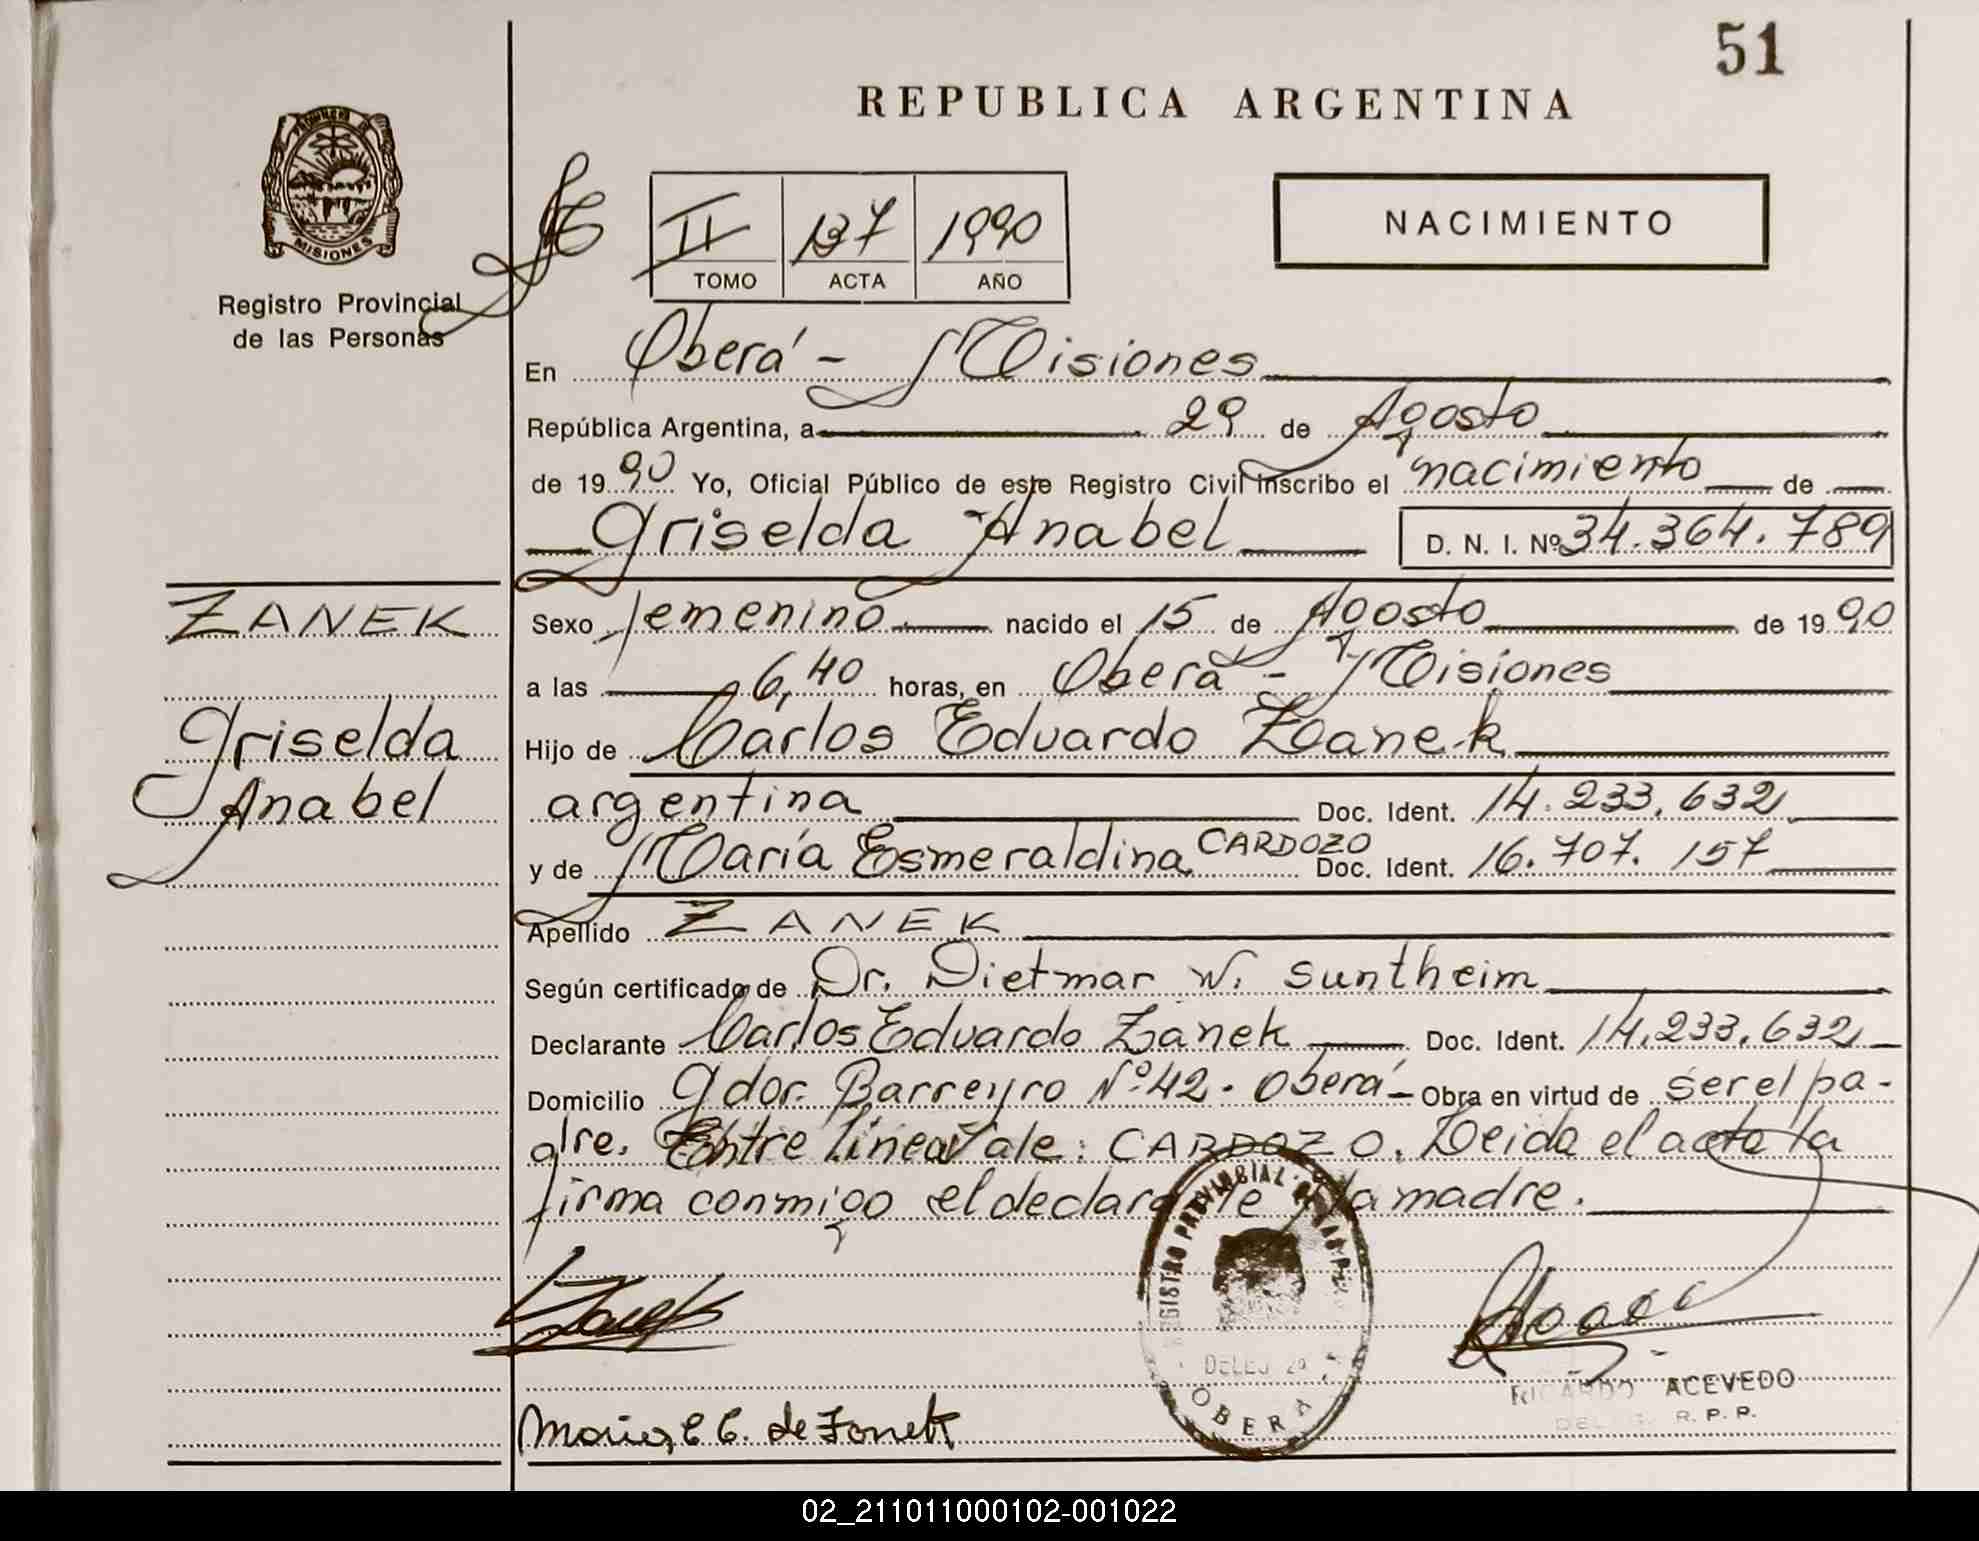 51
REPUBLICA ARGENTINA
NACIMIENTO
PROVINCIA DE
MISIONES
Registro Provincial
de las Personas
II 137 1990
TOMO ACTA AÑO
En Oberá - Misiones
República Argentina, a 29 de Agosto
de 19 90 Yo, Oficial Público de este Registro Civil inscribo el nacimiento de
Griselda Anabel D. N. I. Nº 34.364.789
ZANEK
Griselda
Anabel
Sexo femenino nacido el 15 de Agosto de 19 90
a las 6,40 horas, en Oberá - Misiones
Hijo de Carlos Eduardo Zanek
argentina Doc. Ident. 14.233.632
y de María Esmeraldina CARDOZO Doc. Ident. 16.707.157
Apellido ZANEK
Según certificado de Dr. Dietmar W. Suntheim
Declarante Carlos Eduardo Zanek Doc. Ident. 14.233.632
Domicilio Gdor. Barreyro Nº 42 - Oberá - Obra en virtud de ser el pa-
dre. Entre línea Vale: CARDOZO. Leida el acta la
firma conmigo el declarante la madre.
Zanek
REGISTRO PROVINCIAL DE LAS
OBERA
RICARDO ACEVEDO
R. P. P.
Maria E C. de Zanek
02_211011000102-001022